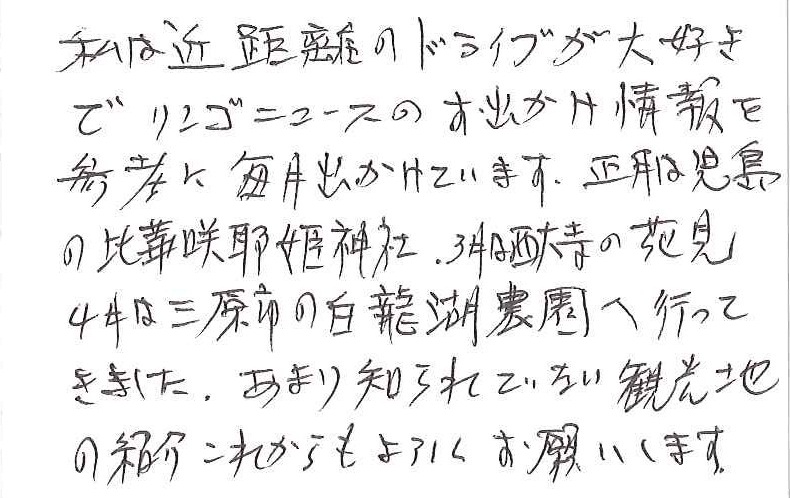 私は近距離のドライブが大好き
でリンゴニュースのお出かけ情報を
参考に毎月出かけています。正月は児島
の比華咲耶姫神社、3月は西大寺の花見
4月は三原市の白龍湖農園へ行って
きました。あまり知られていない観光地
の紹介これからもよろしくお願いします。